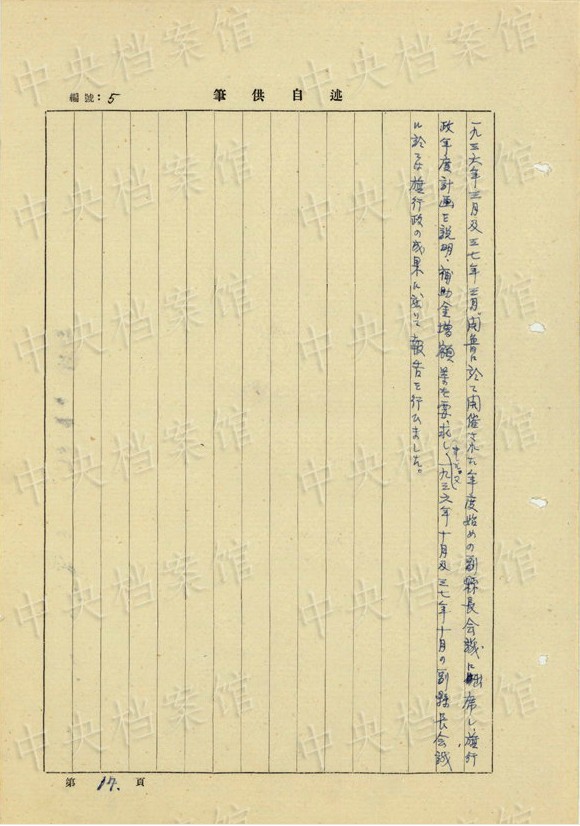 編號：5
筆供自述
一九三六年三月及三七年三月開魯に於て開催された年度始めの副縣長会議に出席し旗行
政年度計画を説明、補助金増額等を要求しました。又一九三六年十月及三七年十月の副縣長会議
に於ては旗行政の成果に就いて報告を行ひました。
第 17. 頁
中央档案馆